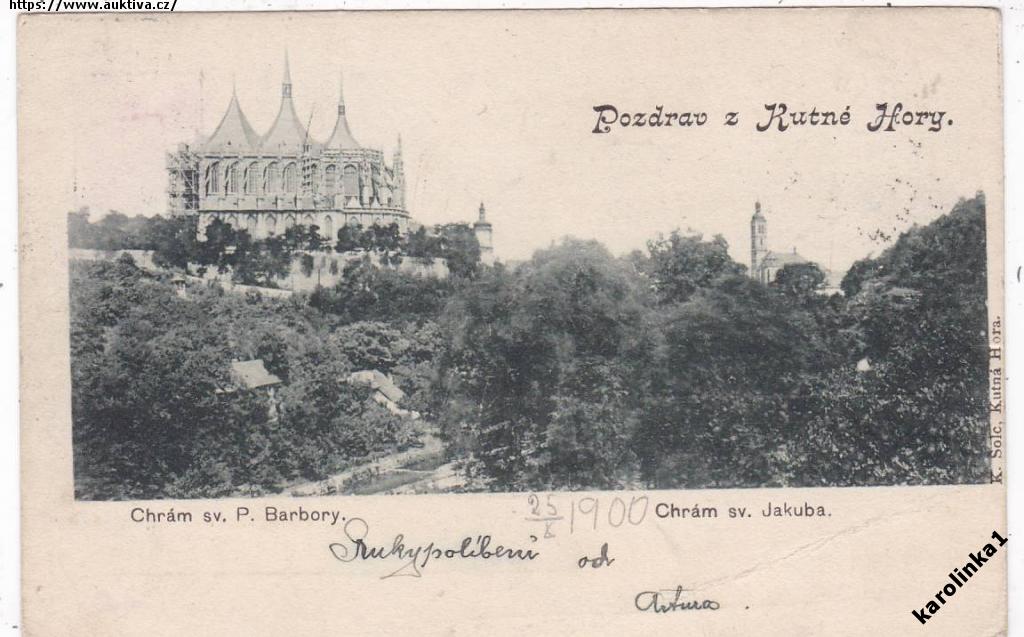 https://www.auktiva.cz/
Pozdrav z Kutné Hory.
K. Šolc, Kutná Hora.
Chrám sv. P. Barbory.
25/X 1900
Chrám sv. Jakuba.
Rukypolíbení od
Artura.
karolinka1